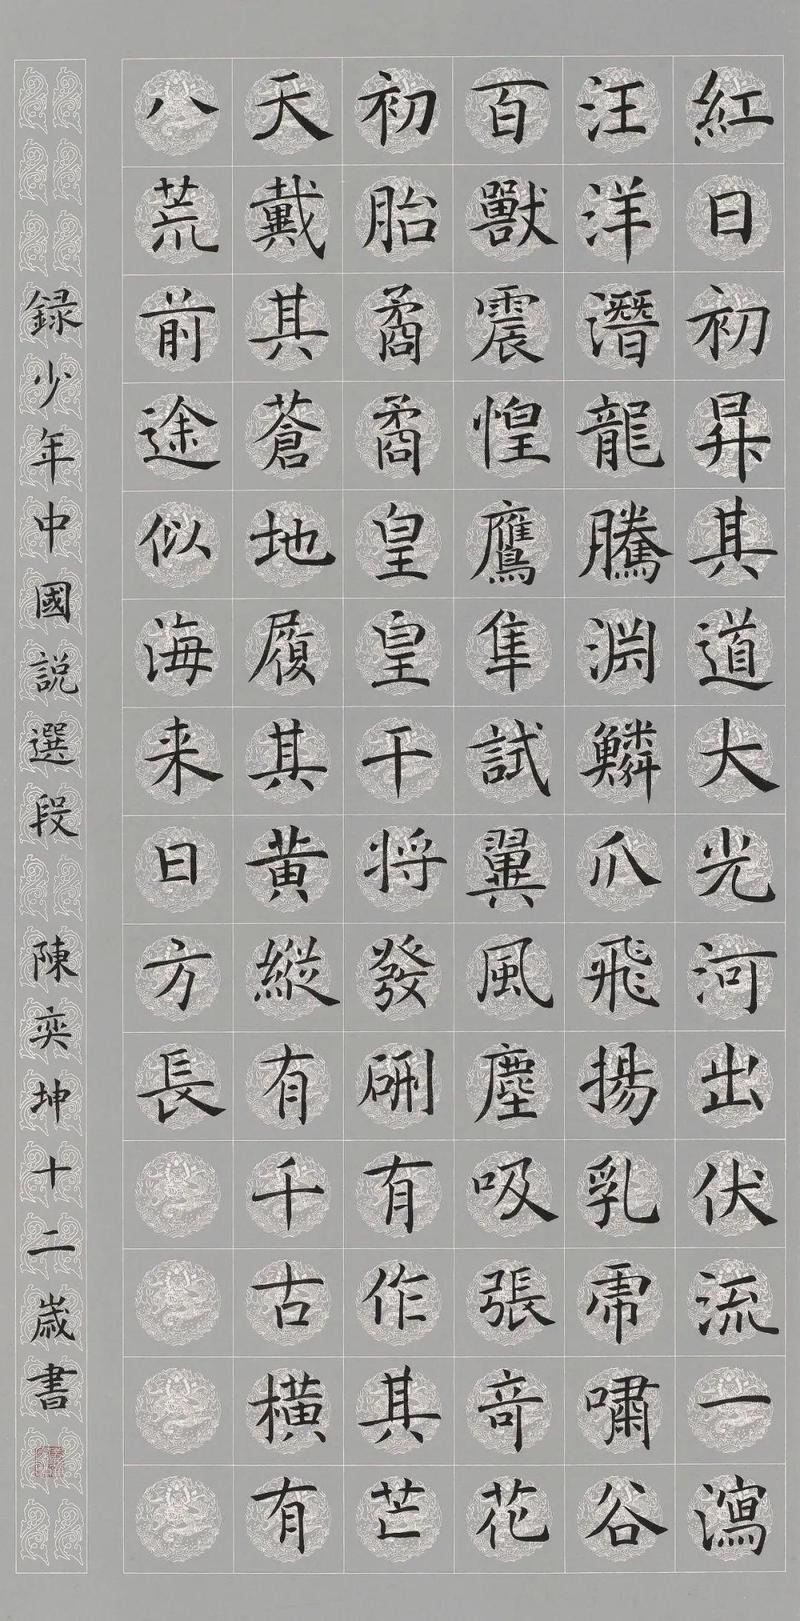 紅日初昇其道大光河出伏流一瀉
汪洋潛龍騰淵鱗爪飛揚乳虎嘯谷
百獸震惶鷹隼試翼風塵吸張奇花
初胎矞矞皇皇干將發硎有作其芒
天戴其蒼地履其黃縱有千古橫有
八荒前途似海来日方長
録少年中國説選段 陳奕坤十二歲書